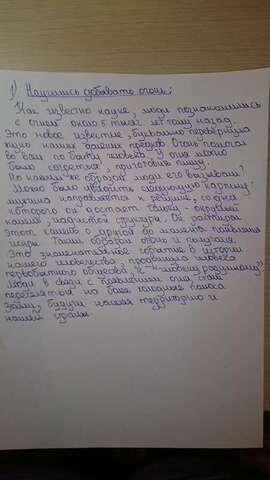 1) Научились добывать огонь:
Как известно науке, люди познакомились
с огнём около 5 тысяч лет тому назад.
Это новое известие, буквально перевернула
жизнь наших предков. Огонь помогал
во всём по быту человека. У огня можно
было согреться, приготовить пищу.
Но каким же образом люди его вызывали?
Можно было увидеть следующую картину:
мужчина направляется к
которого он достаёт камень - округлый
камень, структура. Он растирал
этот камень о другой до момента появления
искры. Таким образом огонь и получали.
Это знаменательное событие в истории
нашего человечества, продвинула человека
первобытного общества, к "человеку разумному"
Люди в связи с появлением огня стали
перебираться на более холодные полюса
Земли, будучи нашей территорию и
нашей